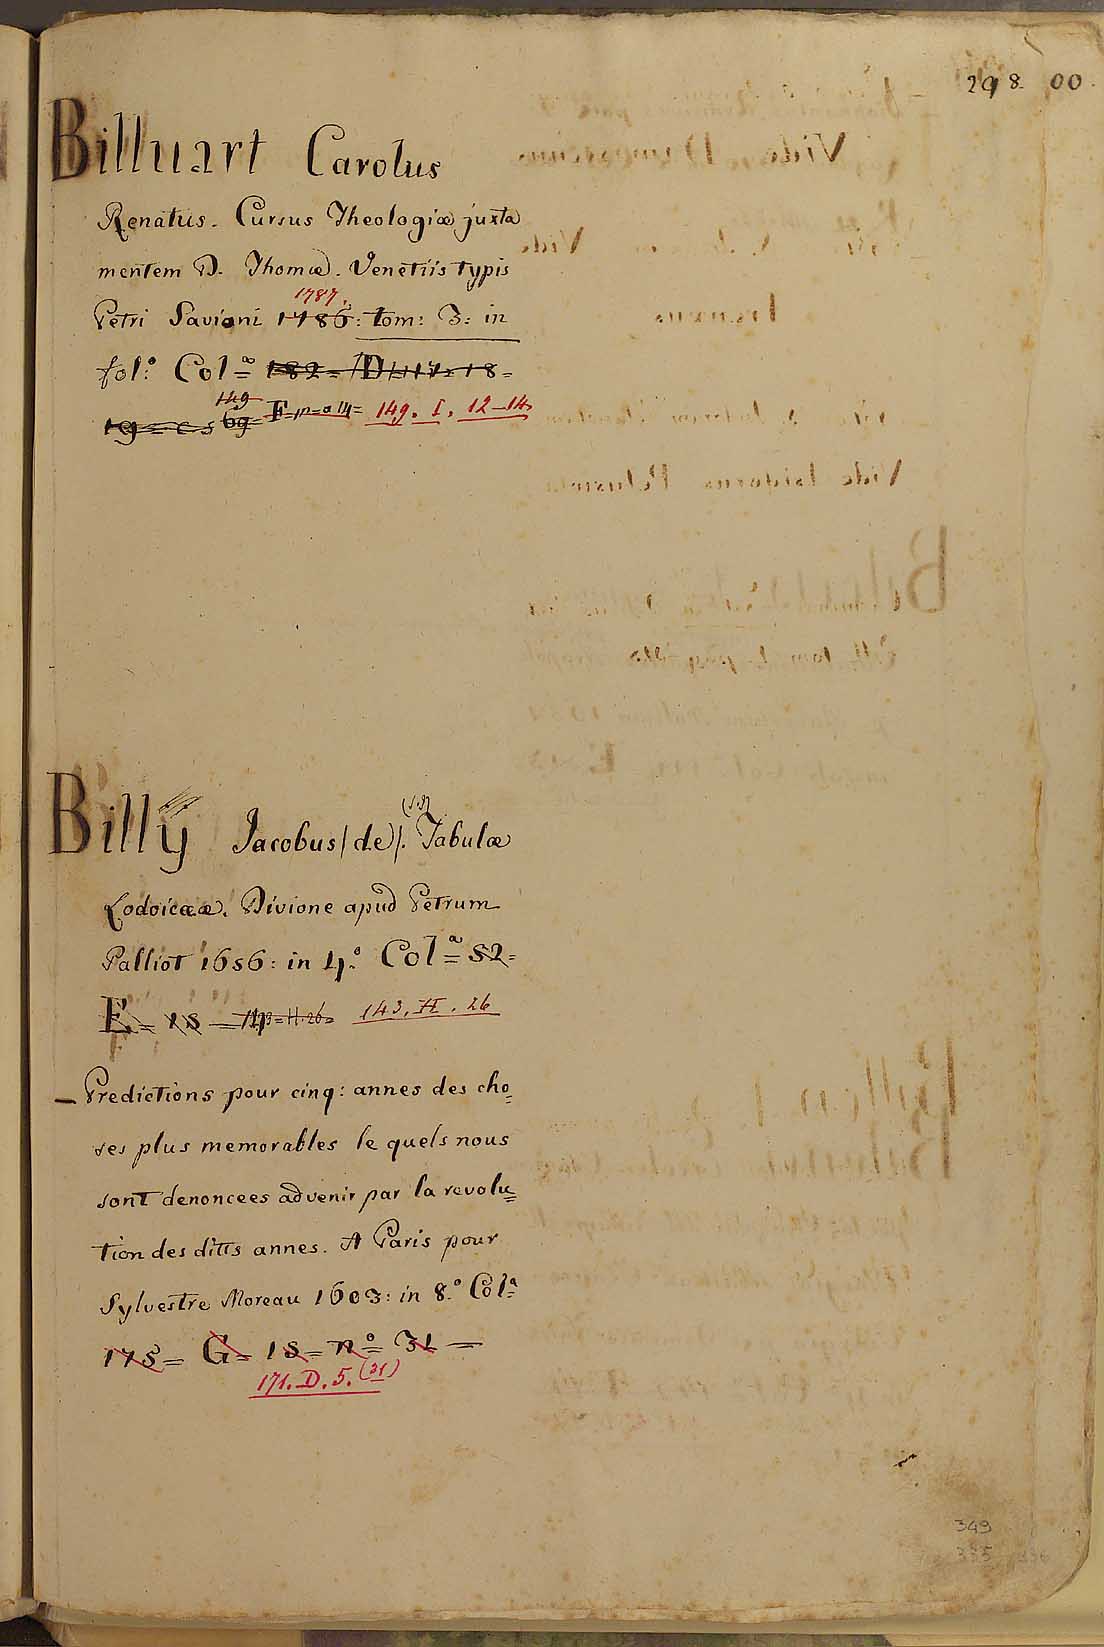 298. 00.
Billuart Carolus
Renatus. Cursus Theologiæ juxta
mentem D. Thomæ. Venetiis typis
1787.
Petri Savioni 1786: tom: 3: in
fol.º Col.ª 182= D 17= 18=
149
19= 69= F= 149. I. 12-14
Billÿ Jacobus /de/. Tabulæ
(S.J)
Lodoicææ. Divione apud Petrum
Palliot 1656: in 4.º Col.ª 52=
E= 15= H. 26= 143. H. 26
_ Predictions pour cinq: annes des cho=
ses plus memorables le quels nous
sont denoncees advenir par la revolu=
tion des ditts annes. A Paris pour
Sylvestre Moreau 1603: in 8.º Col.ª
175= G= 15= nº= 31=
171. D. 5. (31)
349
335 336